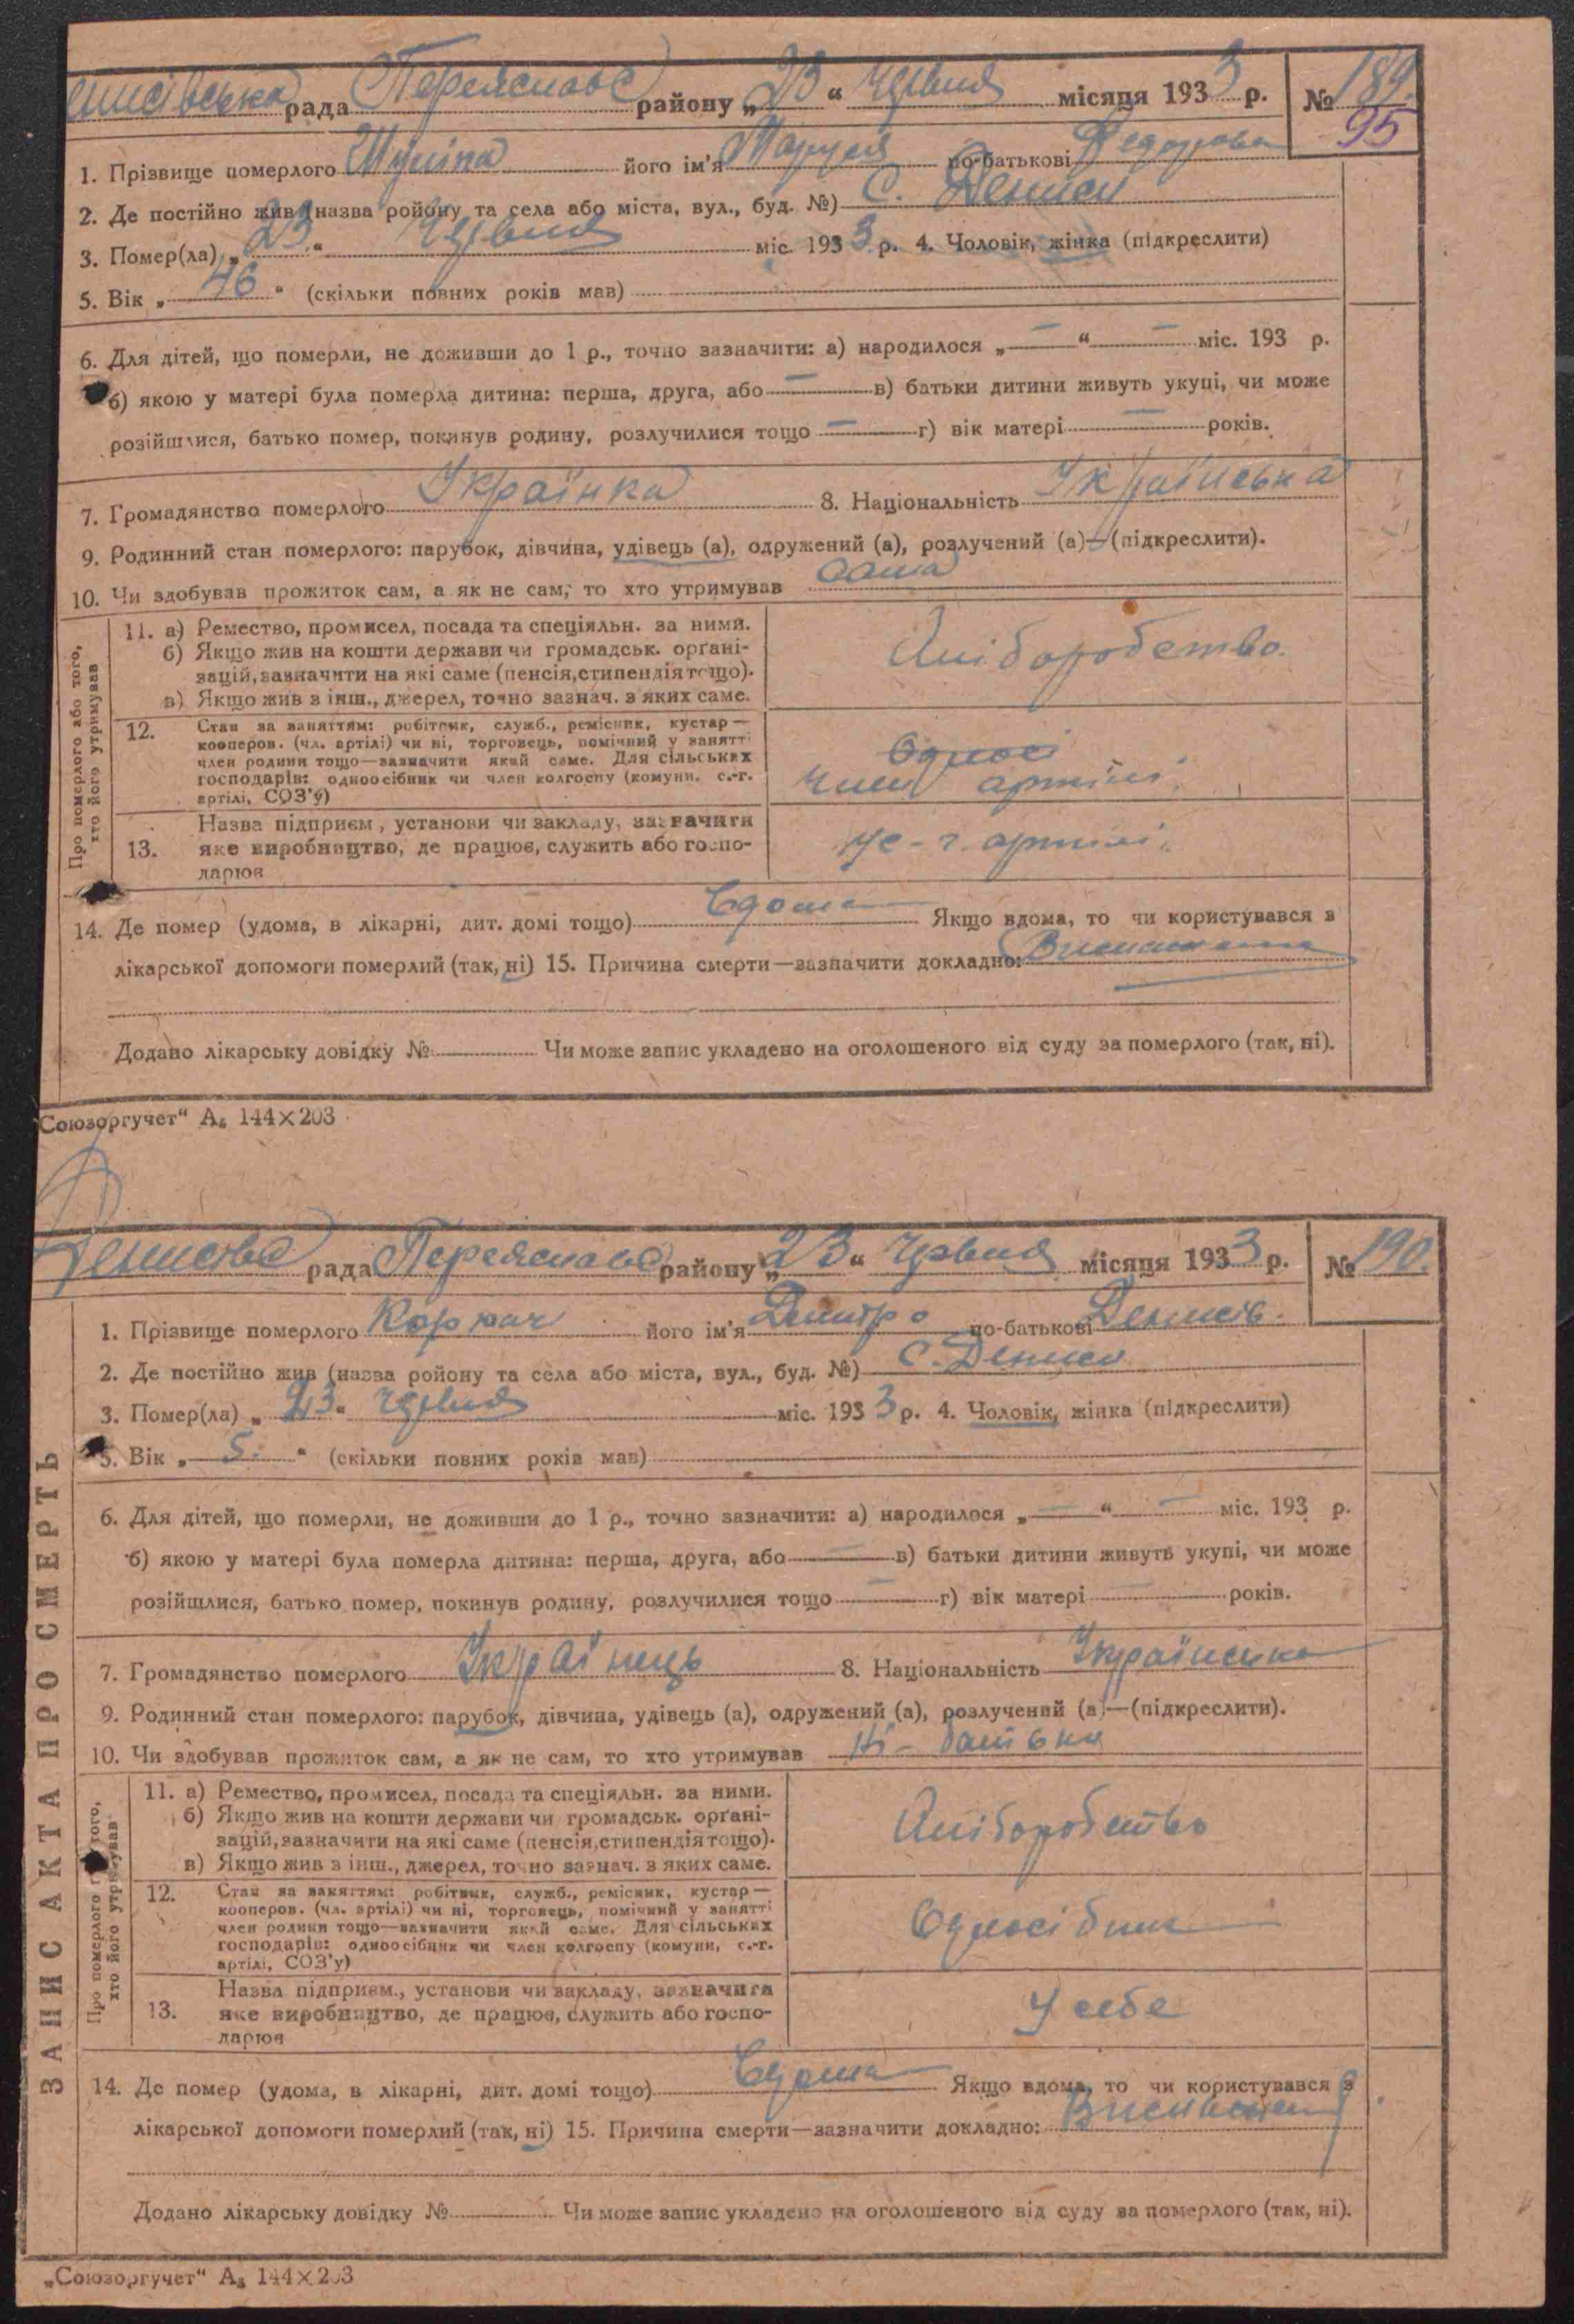 рада Переяславс району „23“ Червня місяця 1933 р. № 189.
95
1. Прізвище померлого його ім'я Маруся по-батькові Федорова
2. Де постійно жив (назва ройону та села або міста, вул., буд. №) С. Дениси
3. Помер(ла) „23“ Червня міс. 1933 р. 4. Чоловік, жінка (підкреслити)
5. Вік „46“ (скільки повних років мав)
6. Для дітей, що померли, не доживши до 1 р., точно зазначити: а) народилося „—“ — міс. 193 р.
б) якою у матері була померла дитина: перша, друга, або — в) батьки дитини живуть укупі, чи може
розійшлися, батько помер, покинув родину, розлучилися тощо — г) вік матері — років.
7. Громадянство померлого Українка 8. Національність Українська
9. Родинний стан померлого: парубок, дівчина, удівець (а), одружений (а), розлучений (а)—(підкреслити).
10. Чи здобував прожиток сам, а як не сам, то хто утримував сама
Про померлого або того,
хто його утримував
11. а) Ремество, промисел, посада та спеціяльн. за ними.
б) Якщо жив на кошти держави чи громадськ. орґані-
зацій, зазначити на які саме (пенсія, стипендія тощо).
в) Якщо жив з інш., джерел, точно зазнач. з яких саме.
Хліборобство.
12. Стан за заняттям: робітник, служб., ремісник, кустар—
кооперов. (чл. артілі) чи ні, торговець, помічний у занятті
член родини тощо—зазначити який саме. Для сільських
господарів: одноосібник чи член колгоспу (комуни, с.-г.
артілі, СОЗ'у)
Одноосі
член артілі.
13. Назва підприєм., установи чи закладу, зазначити
яке виробництво, де працює, служить або госпо-
дарює
артілі.
14. Де помер (удома, в лікарні, дит. домі тощо) Вдома Якщо вдома, то чи користувався з
лікарської допомоги померлий (так, ні) 15. Причина смерти—зазначити докладно: Виснаження
Додано лікарську довідку № Чи може запис укладено на оголошеного від суду за померлого (так, ні).
Союзоргучет“ А₅ 144×203
Денисівс рада Переяславс району „23“ Червня місяця 1933 р. № 190.
1. Прізвище померлого Коржач його ім'я Дмитро по-батькові Денисів.
2. Де постійно жив (назва ройону та села або міста, вул., буд. №) С. Дениси
3. Помер(ла) „23“ Червня міс. 1933 р. 4. Чоловік, жінка (підкреслити)
5. Вік „5.“ (скільки повних років мав)
6. Для дітей, що померли, не доживши до 1 р., точно зазначити: а) народилося „—“ — міс. 193 р.
б) якою у матері була померла дитина: перша, друга, або — в) батьки дитини живуть укупі, чи може
розійшлися, батько помер, покинув родину, розлучилися тощо — г) вік матері — років.
7. Громадянство померлого Українець 8. Національність Українська
9. Родинний стан померлого: парубок, дівчина, удівець (а), одружений (а), розлучений (а)—(підкреслити).
10. Чи здобував прожиток сам, а як не сам, то хто утримував Ні - батьки
ЗАПИС АКТА ПРО СМЕРТЬ
Про померлого того,
хто його утримував
11. а) Ремество, промисел, посада та спеціяльн. за ними.
б) Якщо жив на кошти держави чи громадськ. орґані-
зацій, зазначити на які саме (пенсія, стипендія тощо).
в) Якщо жив з інш., джерел, точно зазнач. з яких саме.
Хліборобство
12. Стан за заняттям: робітник, служб., ремісник, кустар—
кооперов. (чл. артілі) чи ні, торговець, помічний у занятті
член родини тощо—зазначити який саме. Для сільських
господарів: одноосібник чи член колгоспу (комуни, с.-г.
артілі, СОЗ'у)
Одноосібник
13. Назва підприєм., установи чи закладу, зазначити
яке виробництво, де працює, служить або госпо-
дарює
У себе
14. Де помер (удома, в лікарні, дит. домі тощо) Вдома Якщо вдома, то чи користувався з
лікарської допомоги померлий (так, ні) 15. Причина смерти—зазначити докладно: Виснаження
Додано лікарську довідку № Чи може запис укладено на оголошеного від суду за померлого (так, ні).
„Союзоргучет“ А₅ 144×203